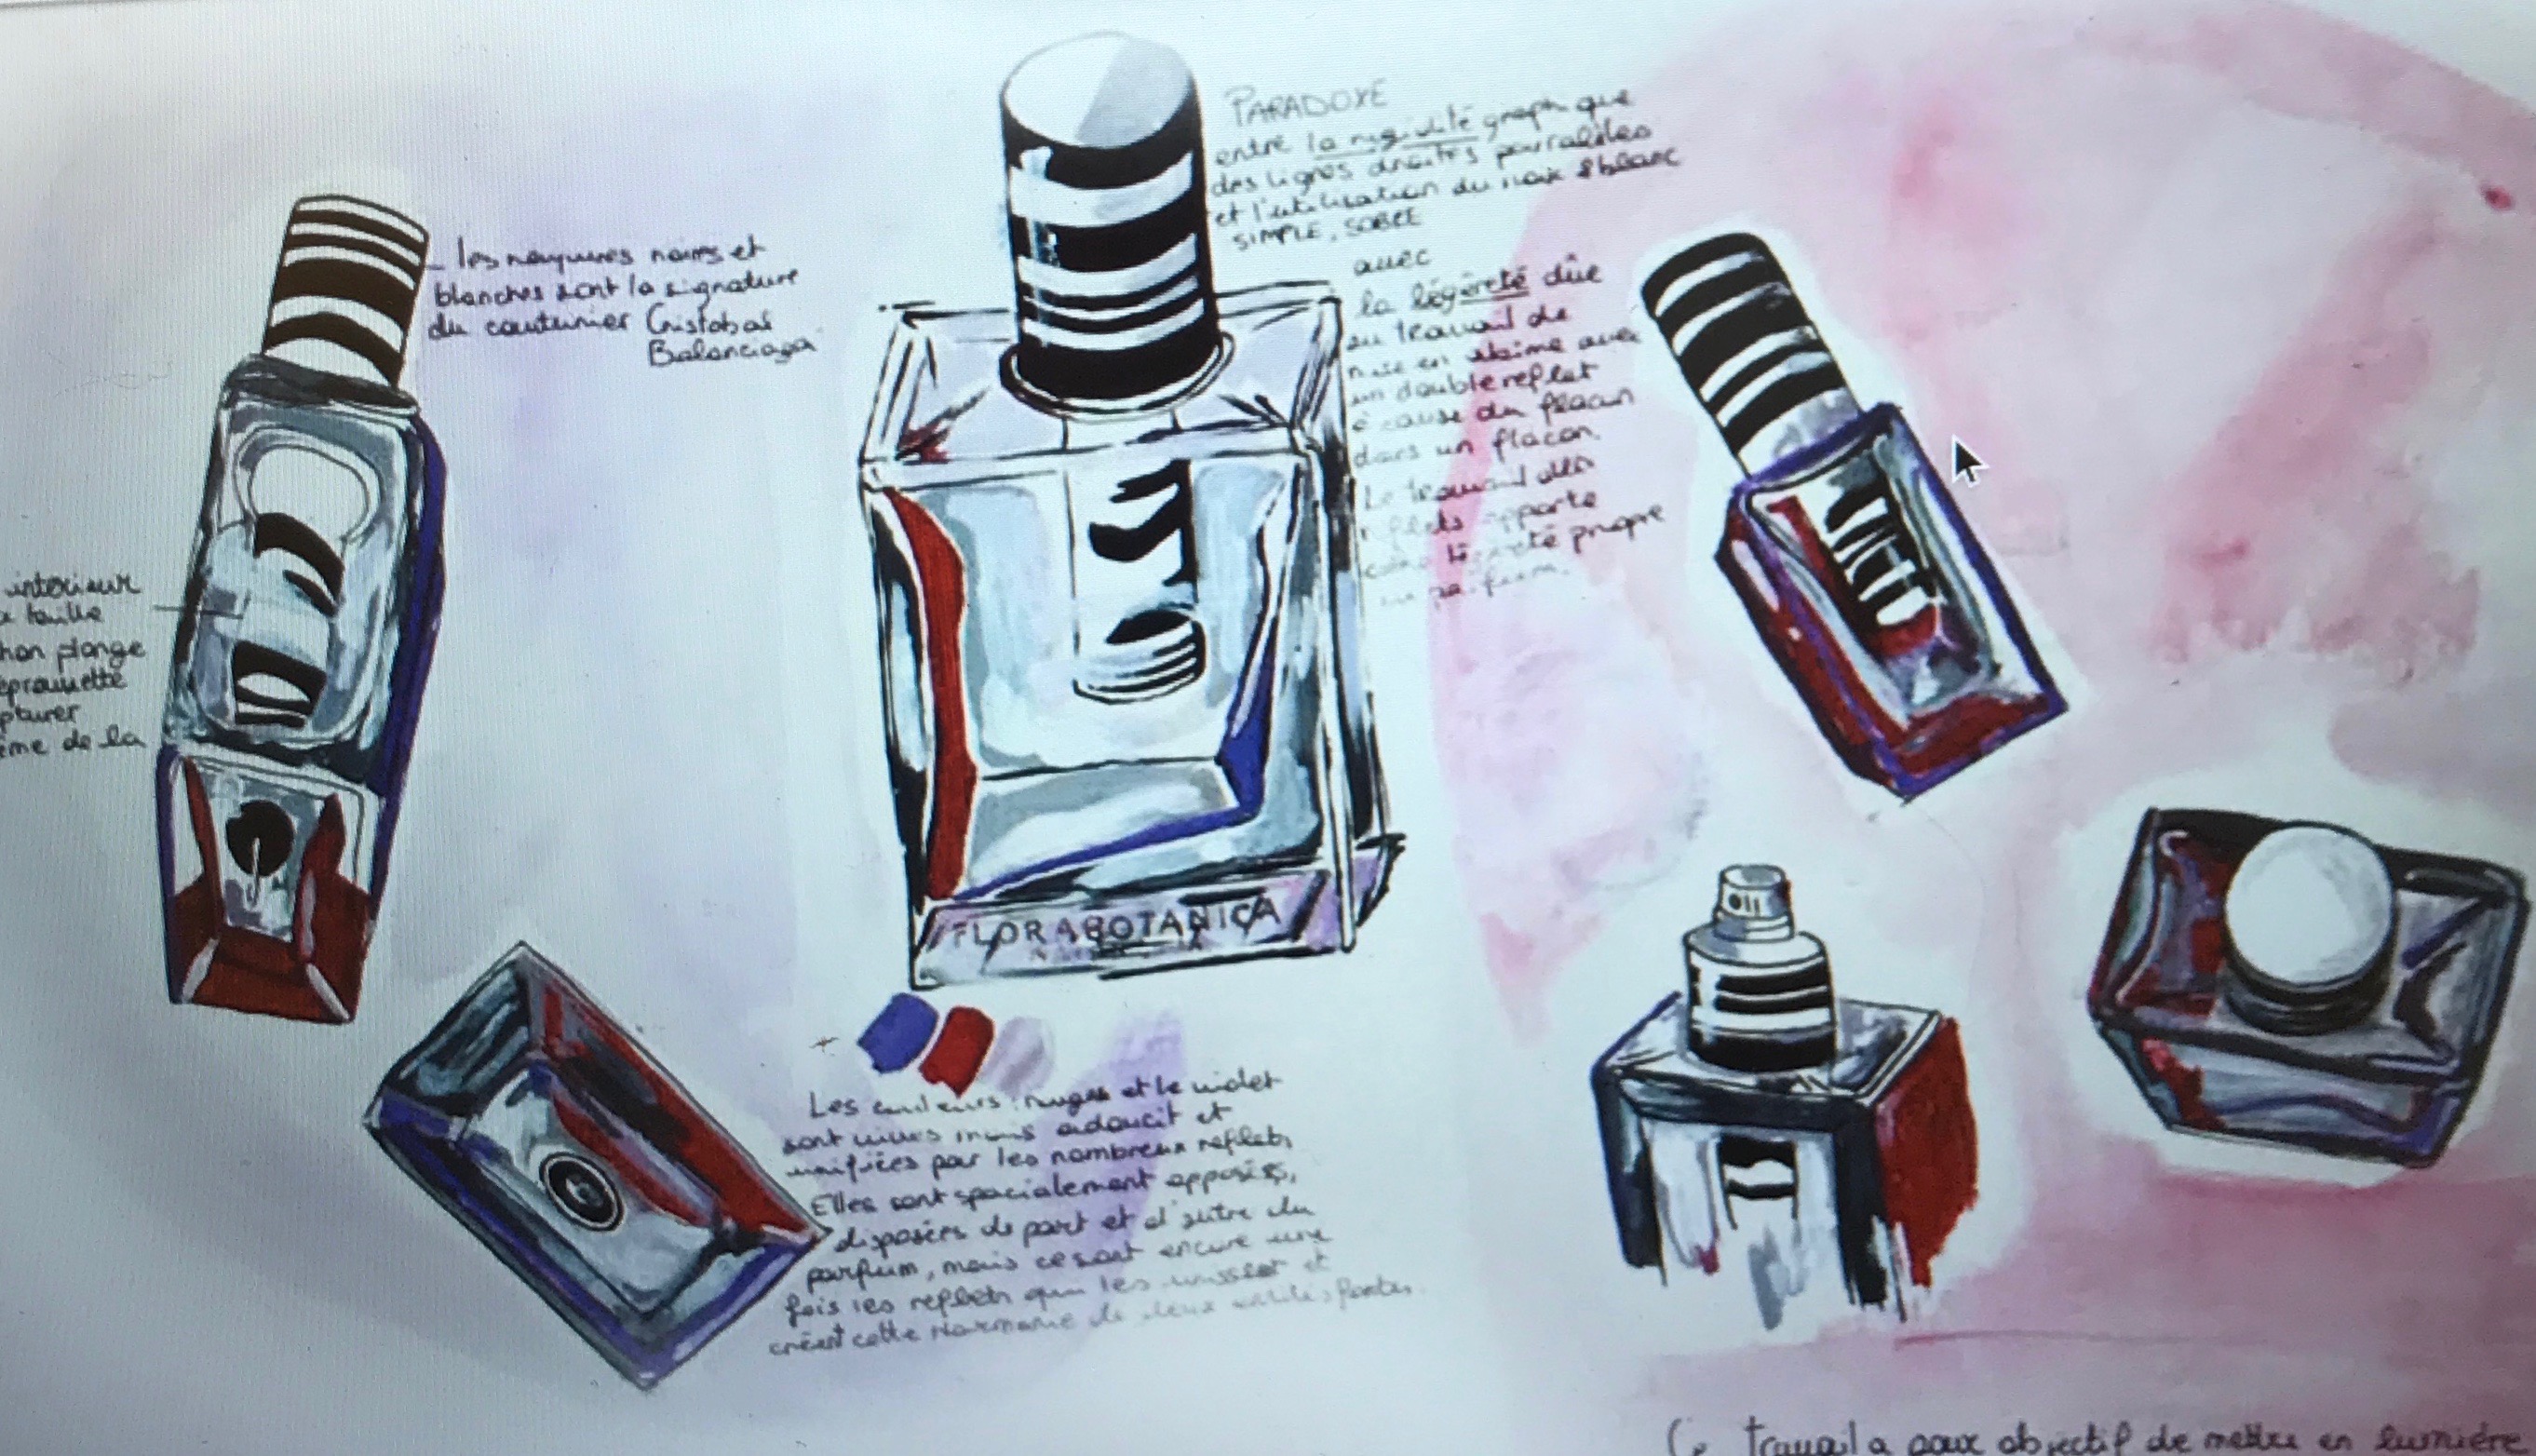 les rayures noires et
blanches sont la signature
du couturier Cristobal
Balenciaga
intérieur
taille
plonge
éprouvette
de la
PARADOXE
entre la rigidité graphique
des lignes droites parallèles
et l'utilisation du noir & blanc
SIMPLE, SOBRE
avec
la légèreté dûe
au travail de
mise en abime avec
un double reflet
à cause du flacon
dans un flacon.
Le travail des
reflets apporte
propre
FLORABOTANICA
Les couleurs rouges et le violet
sont vives mais adoucit et
unifiées par les nombreux reflets,
Elles sont spacialement opposées,
disposées de part et d'autre du
parfum, mais ce sont encore une
fois les reflets qui les unissent et
créent cette Harmonie de deux entités fortes.
Ce travail a pour objectif de mettre en lumière